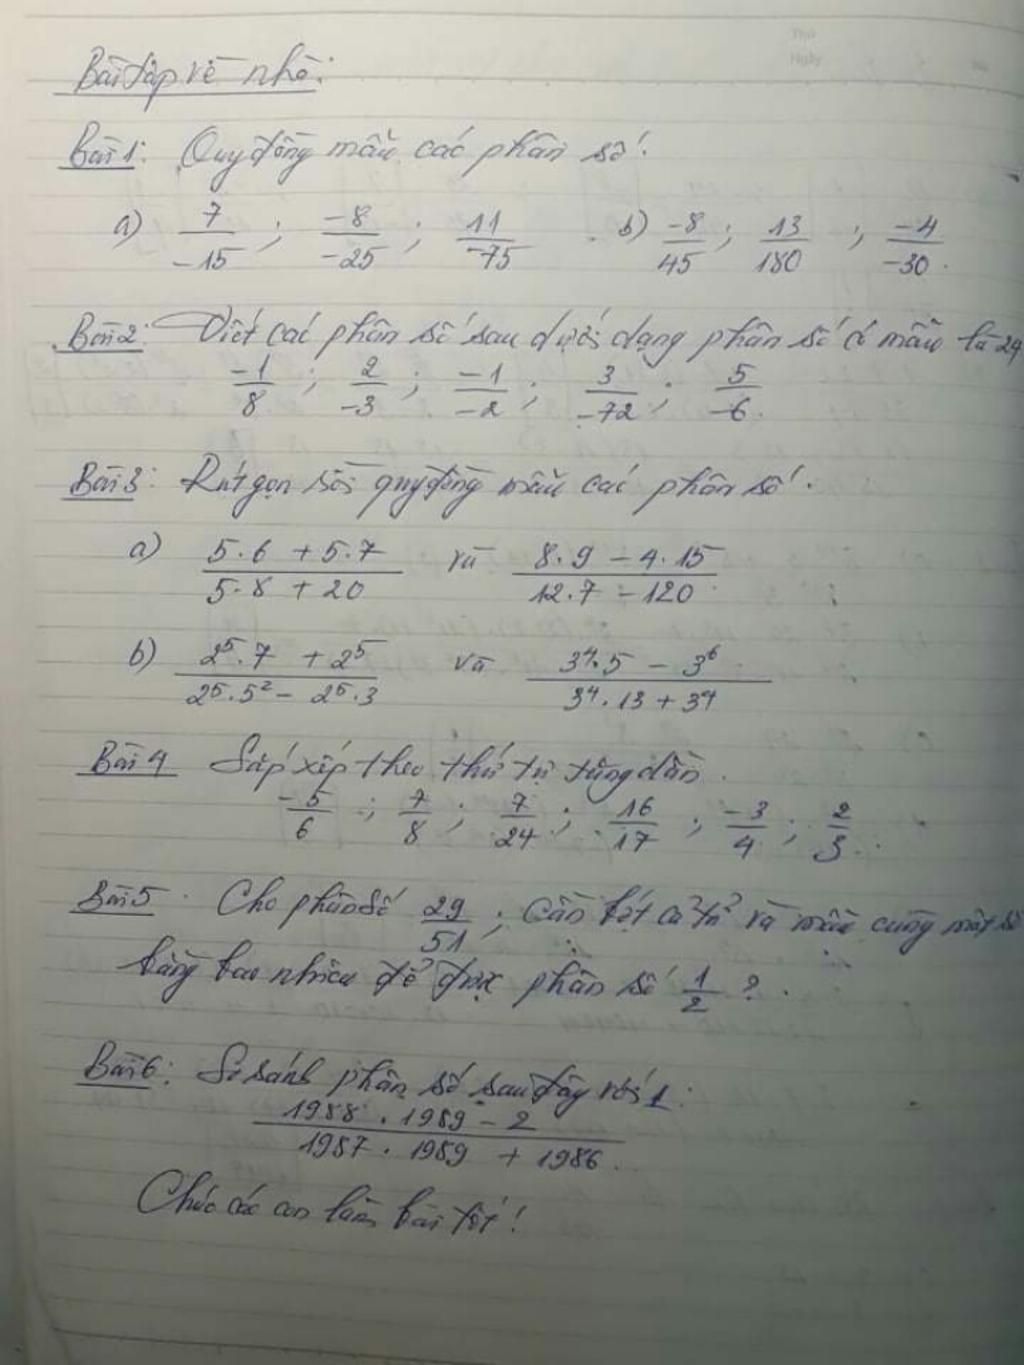 Thứ
Ngày
Bài tập về nhà:
Bài 1: Quy đồng mẫu các phân số.
a) 7/-15 ; -8/-25 ; 11/-75 . b) -8/45 ; 13/180 ; -4/-30 .
Bài 2: Viết các phân số sau dưới dạng phân số có mẫu là 24
-1/8 ; 2/-3 ; -1/-2 ; 3/-72 ; 5/-6 .
Bài 3: Rút gọn rồi quy đồng mẫu các phân số.
a) 5.6 + 5.7 / 5.8 + 20 và 8.9 - 4.15 / 12.7 - 120
b) 2^5.7 + 2^5 / 2^5.5^2 - 2^5.3 và 3^4.5 - 3^6 / 3^4.13 + 3^4
Bài 4 Sắp xếp theo thứ tự tăng dần.
-5/6 ; 7/8 ; 7/24 ; 16/17 ; -3/4 ; 2/3 .
Bài 5 . Cho phân số 29/51 ; Cần bớt cả tử và mẫu cùng một số
bằng bao nhiêu để được phân số 1/2 ? .
Bài 6: So sánh phân số sau đây với 1 :
1988 . 1989 - 2 / 1987 . 1989 + 1986 .
Chúc các con làm bài tốt !